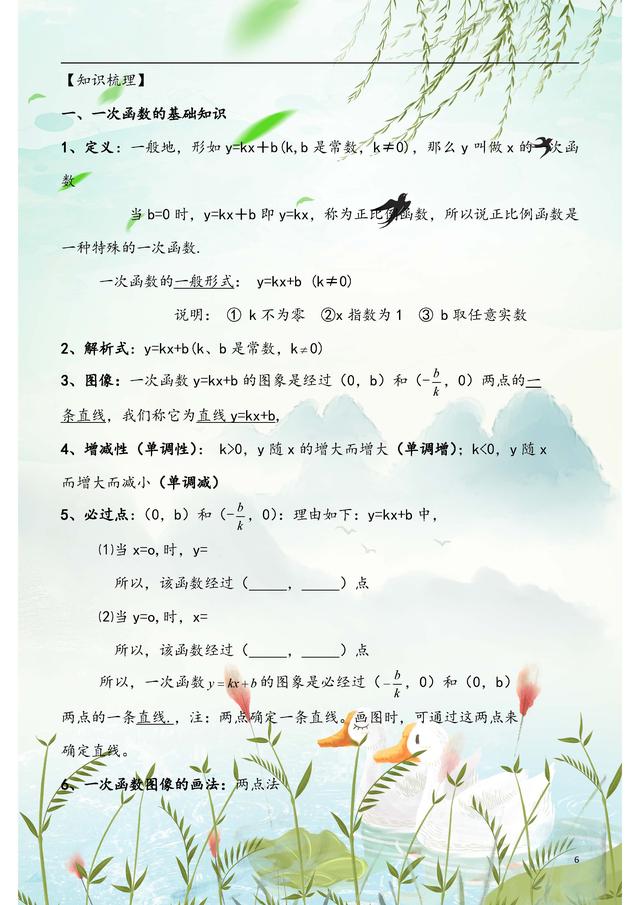 【知识梳理】
一、一次函数的基础知识
1、定义：一般地，形如 y=kx＋b(k,b 是常数，k≠0)，那么 y 叫做 x 的一次函
数
当 b=0 时，y=kx＋b 即 y=kx，称为正比例函数，所以说正比例函数是
一种特殊的一次函数.
一次函数的一般形式： y=kx+b (k≠0)
说明： ① k 不为零 ②x 指数为 1 ③ b 取任意实数
2、解析式：y=kx+b(k、b 是常数，k≠0)
3、图像：一次函数 y=kx+b 的图象是经过（0，b）和（-b/k，0）两点的一
条直线，我们称它为直线 y=kx+b,
4、增减性（单调性）： k>0，y 随 x 的增大而增大（单调增）；k<0，y 随 x
而增大而减小（单调减）
5、必过点：（0，b）和（-b/k，0）：理由如下：y=kx+b 中，
⑴当 x=o,时，y=
所以，该函数经过（_____，_____）点
⑵当 y=o,时，x=
所以，该函数经过（_____，_____）点
所以，一次函数 y=kx+b 的图象是必经过（-b/k，0）和（0，b）
两点的一条直线.，注：两点确定一条直线。画图时，可通过这两点来
确定直线。
6、一次函数图像的画法：两点法
6